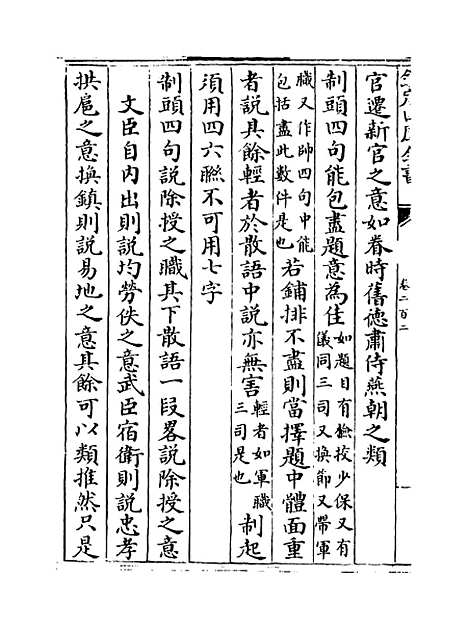 欽定四庫全書
卷二百二
官遷新官之意如眷時舊德肅侍燕朝之類
制頭四句能包盡題意為佳如題目有檢校少保又有儀同三司又換節又帶軍
職又作帥四句中能包括盡此數件是也若鋪排不盡則當擇題中體面重
者說其餘輕者於散語中說亦無害輕者如軍職三司是也制起
須用四六聯不可用七字
制頭四句說除授之職其下散語一段畧說除授之意
文臣自內出則說均勞佚之意武臣宿衛則說忠孝
拱扈之意換鎮則說易地之意其餘可以類推然只是